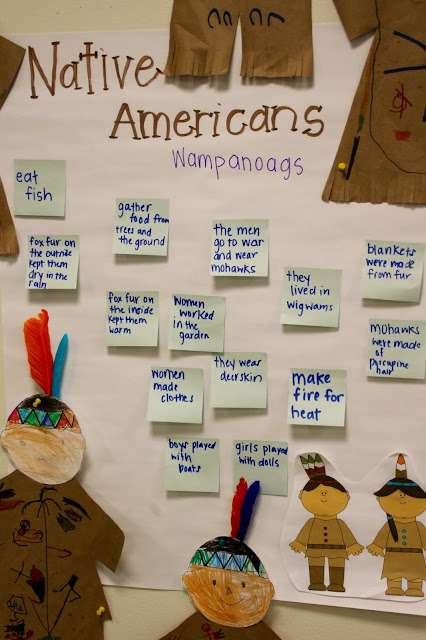 Native
Americans
Wampanoags
eat
fish
gather
food from
trees and
the ground
the men
go to war
and wear
mohawks
fox fur on
the outside
kept them
dry in the
rain
blankets
were made
from fur
they
lived in
wigwams
fox fur on
the inside
kept them
warm
Women
worked
in the
garden
mohawks
were made
of
porcupine
hair
women
made
clothes
they wear
deerskin
make
fire for
heat
boys played
with
boats
girls played
with dolls